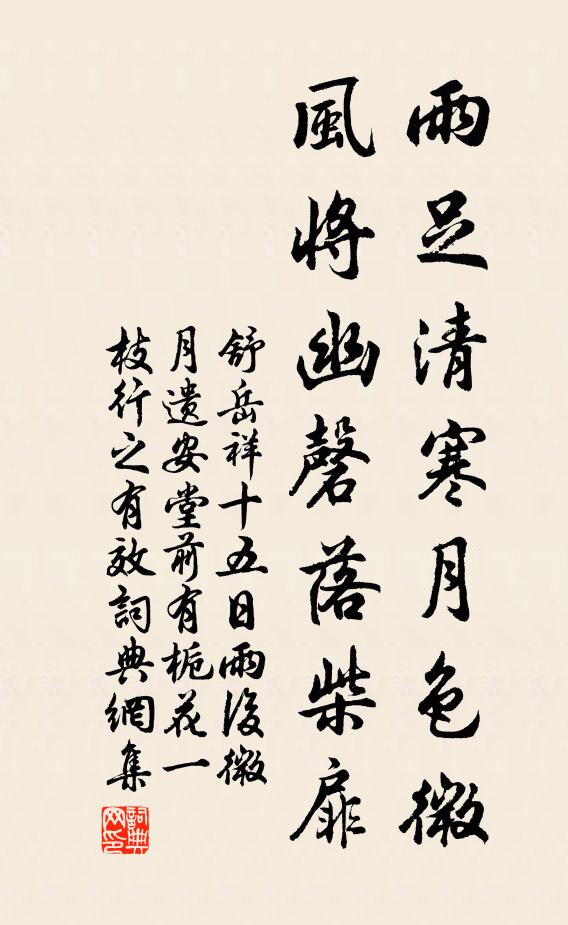 雨足清寒月色微
風將幽磬落柴扉
舒岳祥十五日雨後微
月遺安堂前有栀花一
枝行之有效詞典網集
詞典網印